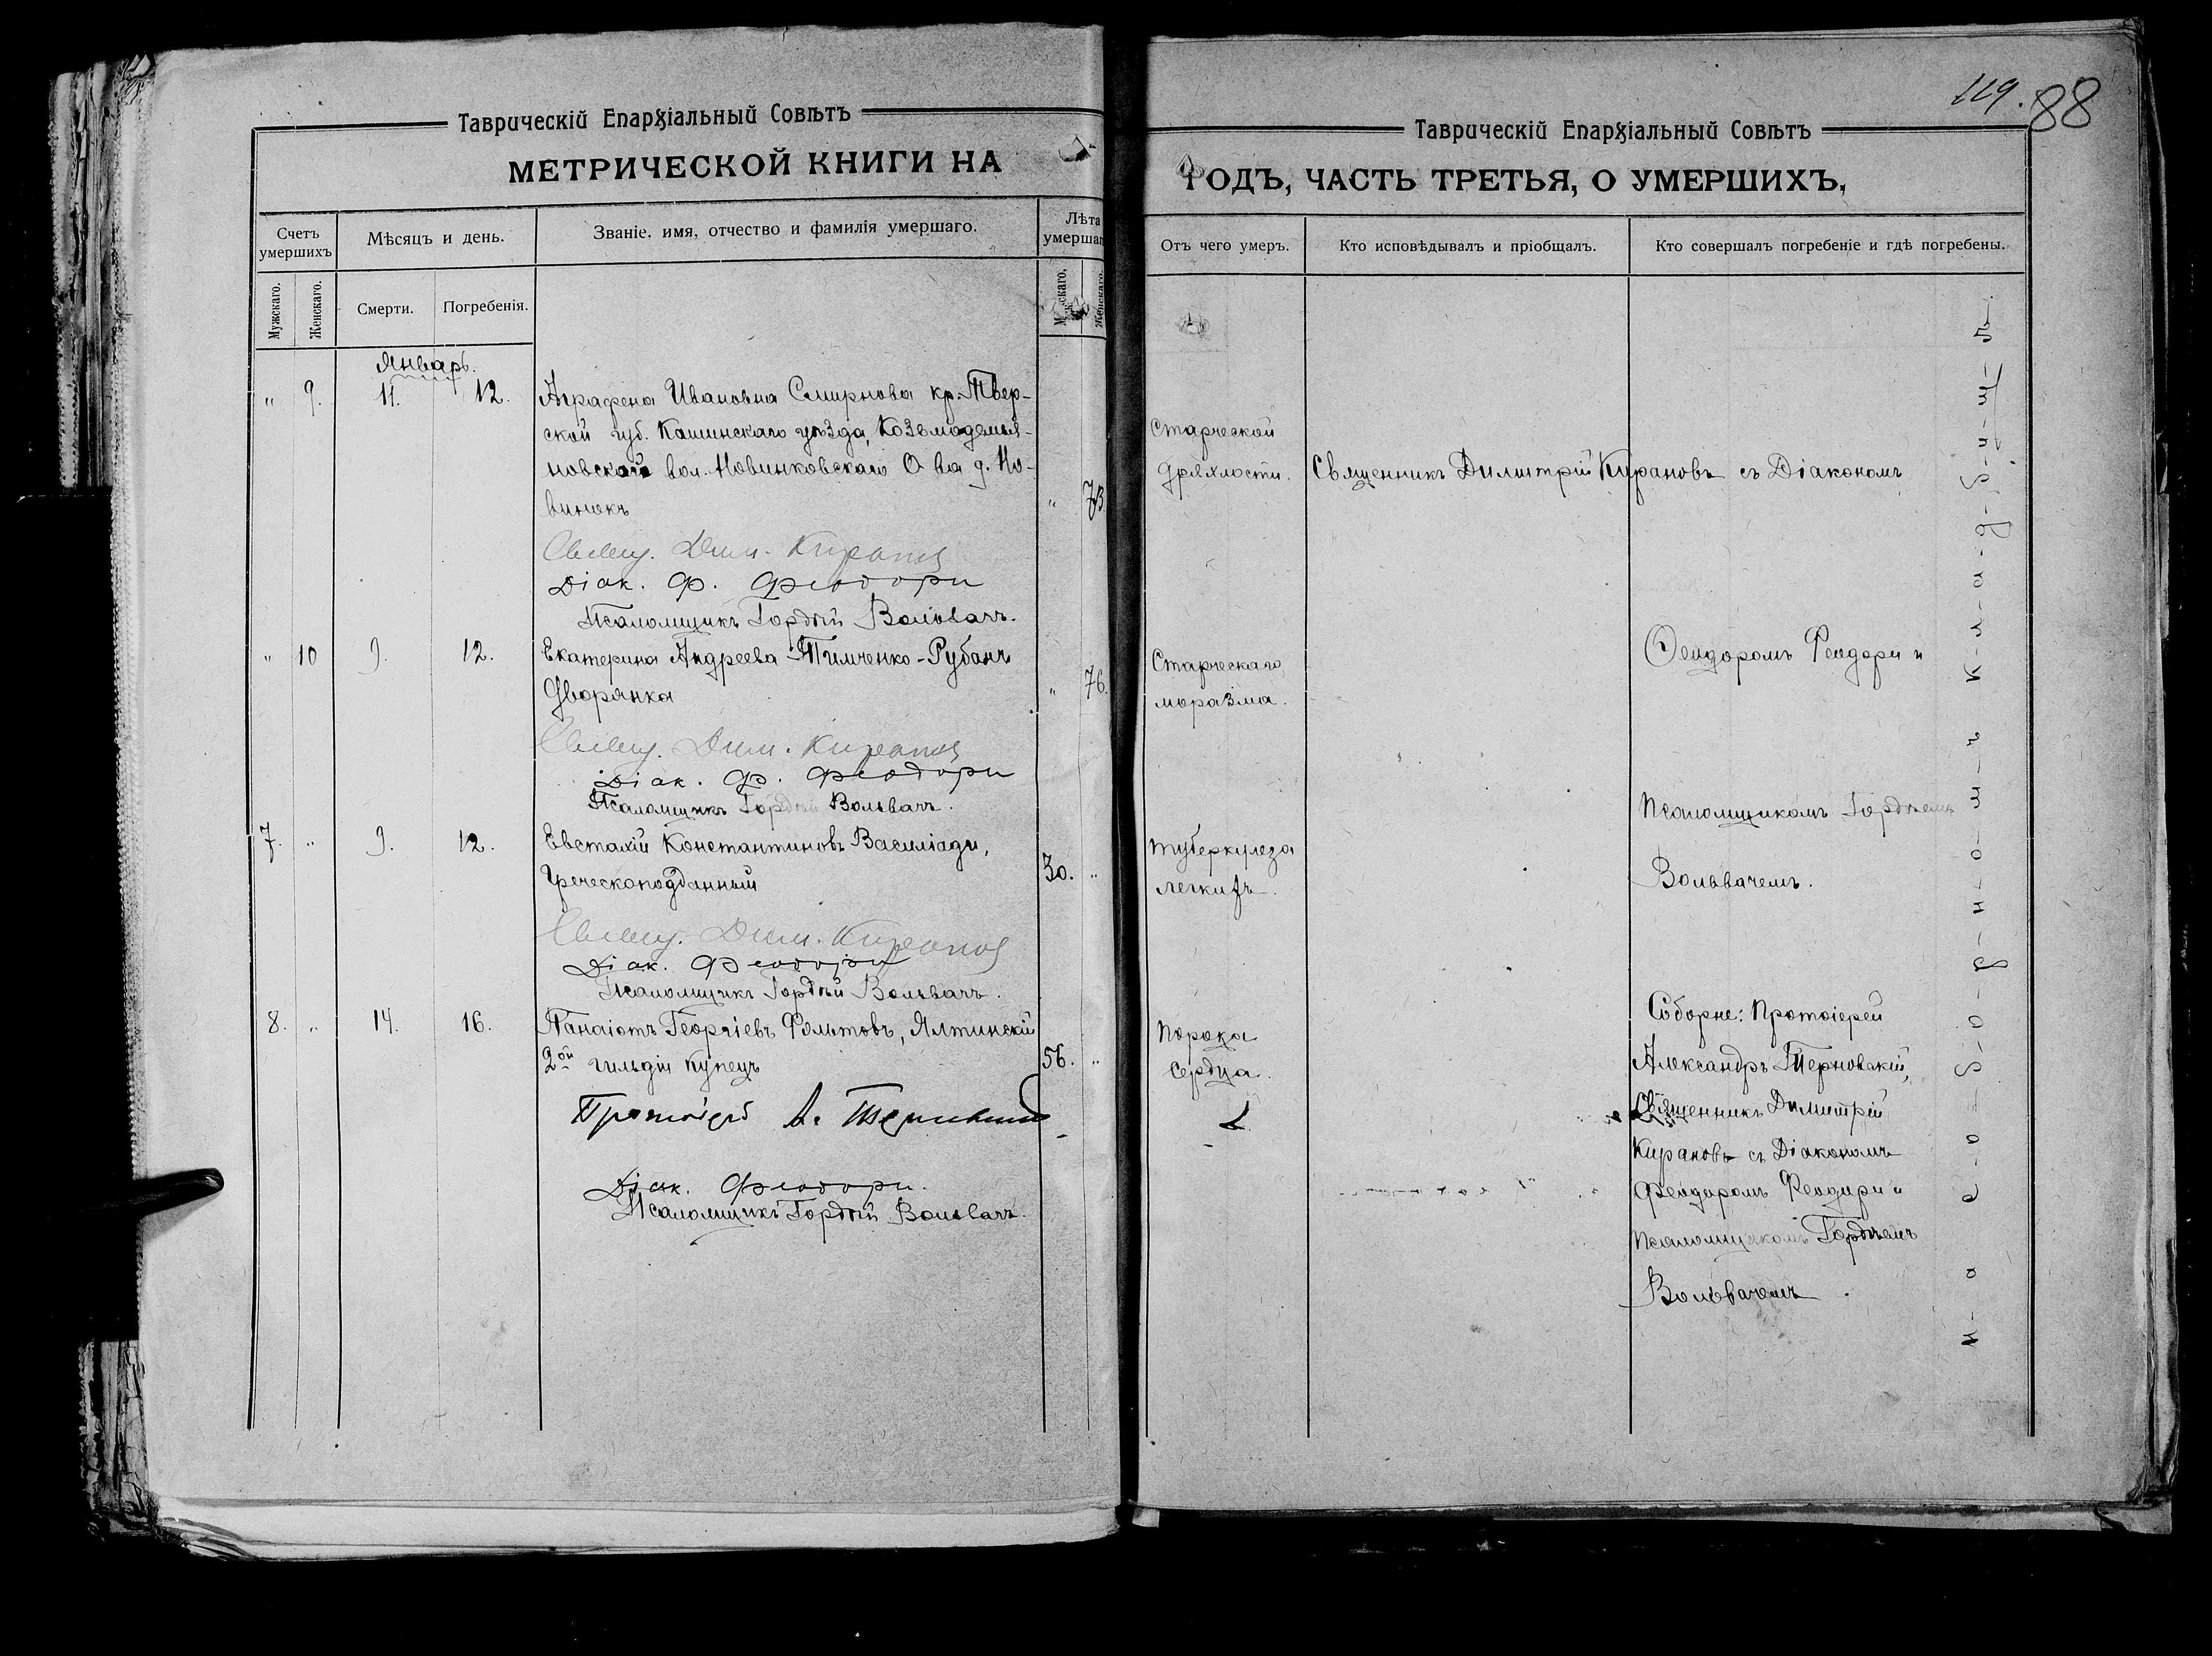 Таврическій Епархіальный Совѣтъ
МЕТРИЧЕСКОЙ КНИГИ НА
Счетъ умершихъ
Мѣсяцъ и день.
Званіе, имя, отчество и фамилія умершаго.
Лѣта умершаг
Мужскаго.
Женскаго.
Смерти.
Погребенія.
Женскаго.
Январь.
" 9. 11. 12. Аграфена Ивановна Смирнова кр. Твер-
ской губ. Кашинскаго уѣзда, Козьмодемья-
новской вол. Новинковскаго О-ва д. Но-
винокъ " 73
Свящ. Дим. Кирановъ
Діак. Ф. Феодори
Псаломщикъ Гордѣй Вольвачъ.
" 10 9. 12. Екатерина Андреева Тимченко-Рубанъ
Дворянка " 76.
Свящ. Дим. Кирановъ
Діак. Ф. Феодори
Псаломщикъ Гордѣй Вольвачъ.
7. " 9. 12. Евстахій Константиновъ Василіади,
Греческоподданный 30. "
Свящ. Дим. Кирановъ
Діак. Феодори
Псаломщикъ Гордѣй Вольвачъ.
8. " 14. 16. Панаіотъ Георгіевъ Фольтовъ, Ялтинскій
2ой гильдіи купецъ 56. "
Протоіерей А. Терновскій
Діак. Феодори.
Псаломщикъ Гордѣй Вольвачъ.
119. 88
Таврическій Епархіальный Совѣтъ
ГОДЪ, ЧАСТЬ ТРЕТЬЯ, О УМЕРШИХЪ,
Отъ чего умеръ.
Кто исповѣдывалъ и пріобщалъ.
Кто совершалъ погребеніе и гдѣ погребены.
Старческой
дряхлости. Священникъ Димитрій Кирановъ съ Діакономъ
Старческаго
моразма.
Феодоромъ Феодори и
Туберкулеза
легкихъ.
Псаломщикомъ Гордѣемъ
Вольвачемъ.
Порока
сердца.
Соборне: Протоіерей
Александръ Терновскій,
Священникъ Димитрій
Кирановъ съ Діакономъ
Феодоромъ Феодори и
Псаломщикомъ Гордѣемъ
Вольвачемъ.